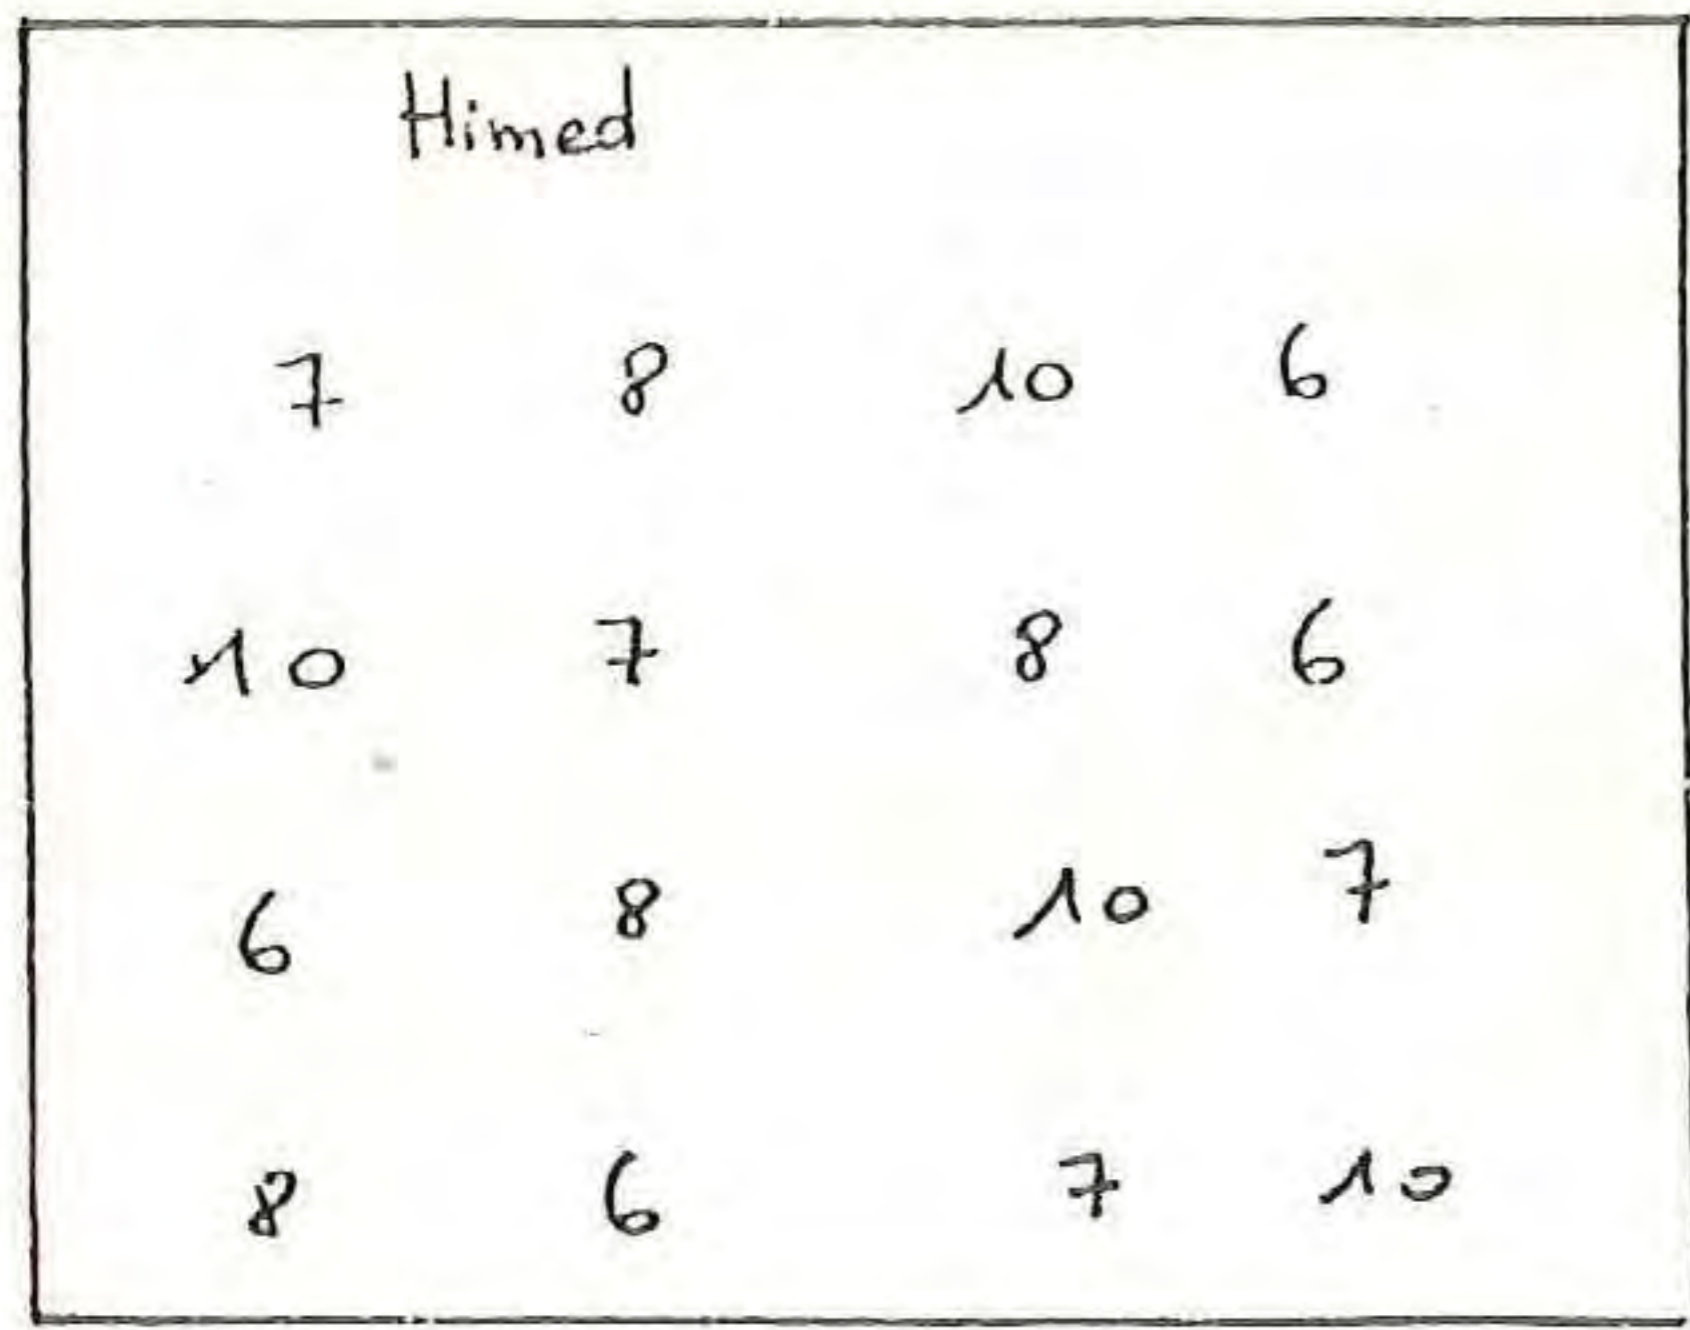 Himed
7 8 10 6
10 7 8 6
6 8 10 7
8 6 7 10